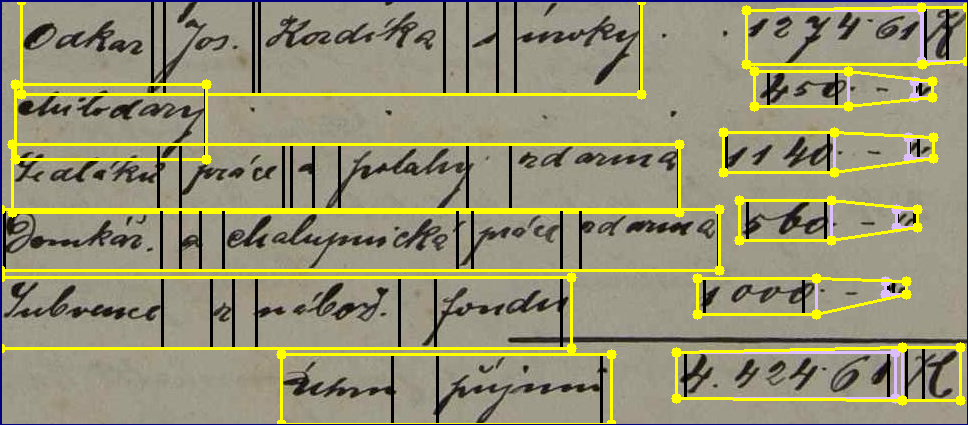 Odkaz Jos. Kordíka s úroky . . 1274·61 K
Milodary . . . 450·- „
Sedláků práce a potahy zdarma 1140·- „
Domkář. a chalupnická práce zdarma 560·- „
Subvence z nábož. fondu 1000·- „
Úhrn příjmů 4.424·61 K